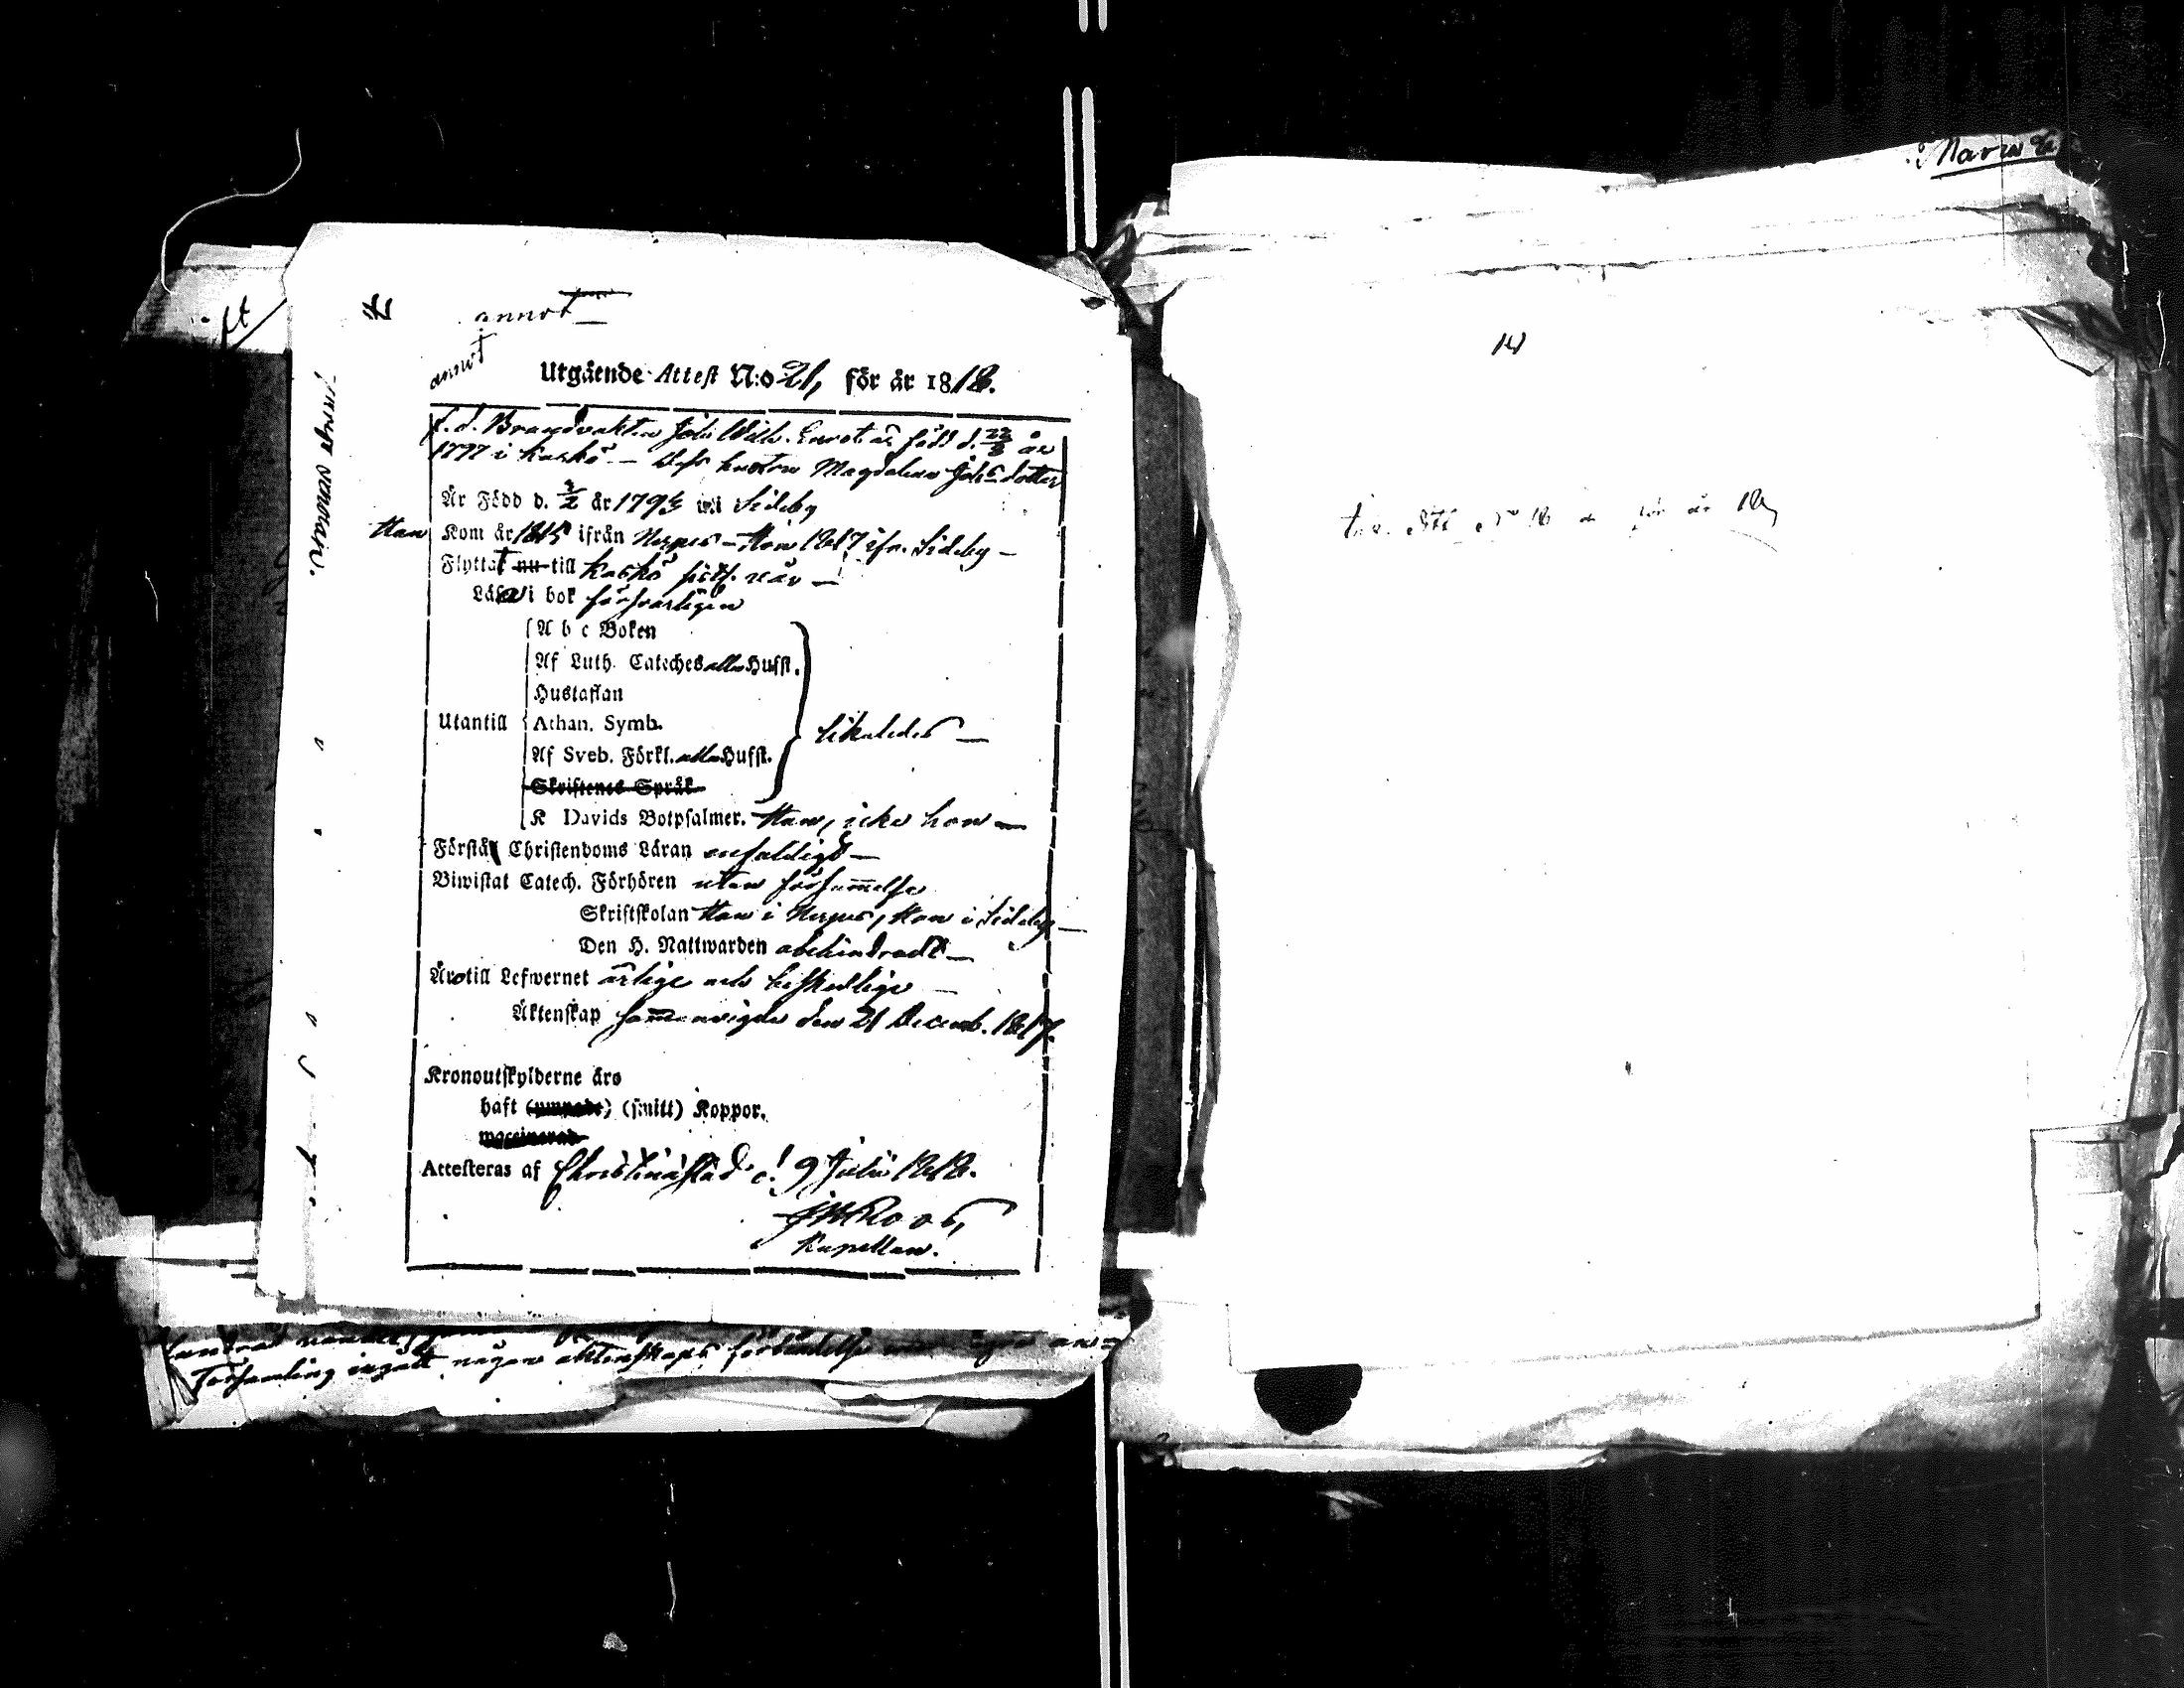 annot
annot
Utgående Attest N:o 21, för år 1818.
f.d. Brandvakten Joh. Wilh. född d. 22/8 år
1797 i Kaskö – dess hustru Magdalena Johs dotter
Är Född d. 3/2 år 1793 i Sideby
Han Kom år 1815 ifrån Nerpes – Hon 1817 ifr. Sideby –
Flyttat nu till Kaskö sistl. år –
Läsa i bok försvarligen
A b c Boken
Af Luth. Cateches alla Hufst.
Hustaflan
Utantill Athan. Symb. likaledes –
Af Sveb. Förkl. alla Hufst.
Skriftenes Språk
K Davids Botpsalmer. Han, icke hon –
Förstå Christendoms Läran enfaldigt –
Biwistat Catech. Förhören utan försummelse
Skriftskolan Han i Nerpes, Hon i Sideby –
Den H. Nattwarden obehindradt –
Äro till Lefwernet ärlige och beskedlige –
Äktenskap sammanvigde den 21 Decemb. 1817.
Kronoutskylderne äro
haft (smitt) Koppor.
waccinerad
Attesteras af Christinæstad d. 9 Julii 1818.
Roos,
Kapellan.
församling ingått någon äktenskaps förbindelse
för år